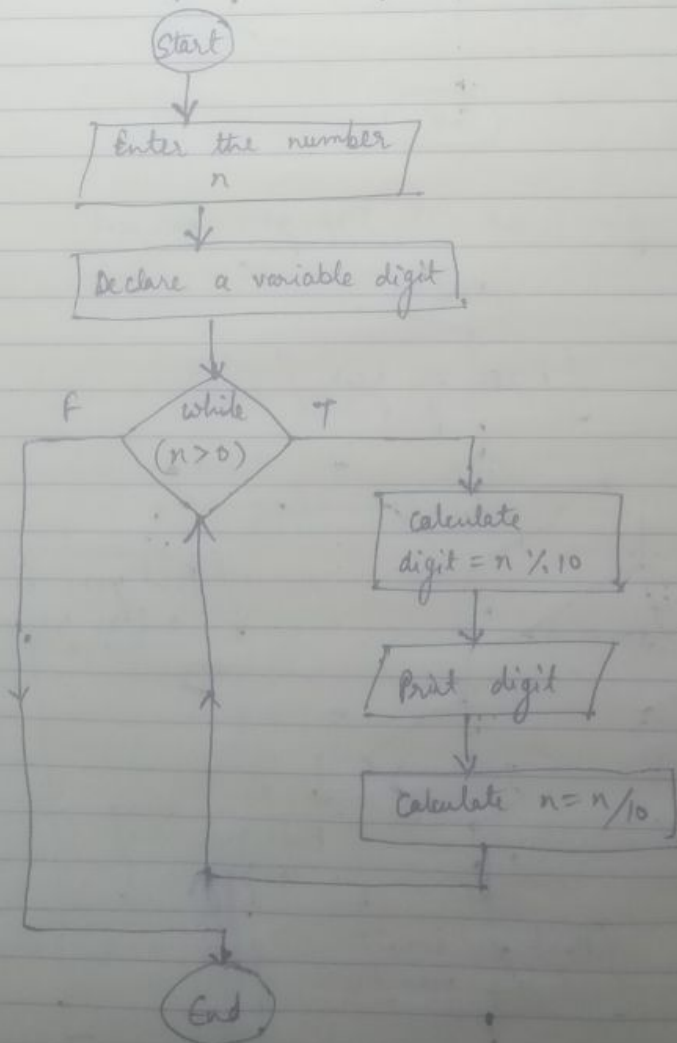 Start
Enter the number
n
Declare a variable digit
F
while
T
(n>0)
Calculate
digit = n % 10
Print digit
Calculate n = n/10
End